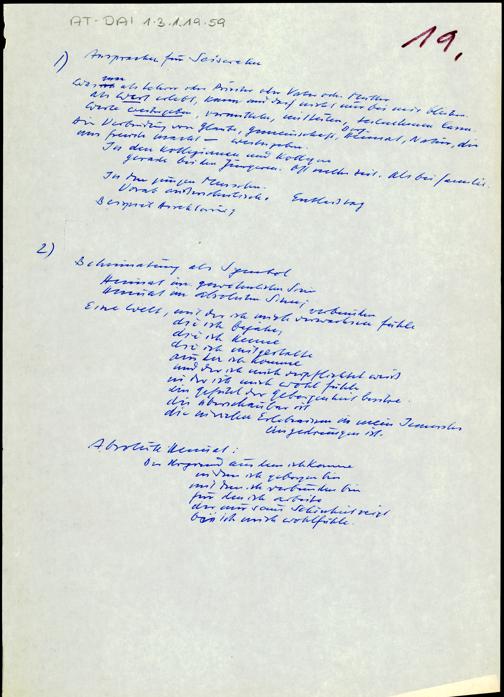 AT-DAI 1.3.1.19.59
19.
1) Ansprache für Seiserahn
Was man als Lehrer oder Priester oder Vater oder Mutter
als Wert erlebt, kann und darf nicht nur bei mir bleiben.
Werte weitergeben, vermitteln, mitteilen, lassen.
Die Verbindung von Glaube, Gemeinschaft, Dorf, Heimat, Natur, die
uns freude macht – weitergeben.
In den Kollegianen und Kollegen
gerade bei den Jüngeren. Oft mehr Zeit. Als bei Familie.
In den jungen Menschen.
Vorab
Beispiel
2)
Beheimatung als Symbol
Heimat im gewöhnlichen Sinn
Heimat im absoluten Sinn; verbunden
Eine Welt, mit der ich mich verwachsen fühle
die ich bejahe,
die ich kenne
die ich mitgestalte
aus der ich komme
und der ich mich verpflichtet weiß
in der ich mich wohl fühle
ein gefühl der geborgenheit
die überschaubar ist
die in vielen Erlebnissen in mein Innerstes
eingedrungen ist.
Absolute Heimat:
Der Urgrund aus dem ich komme
in dem ich geborgen bin
mit dem ich verbunden bin
für den ich arbeite
der mir seine Schönheit zeigt
bei ich mich wohlfühle.